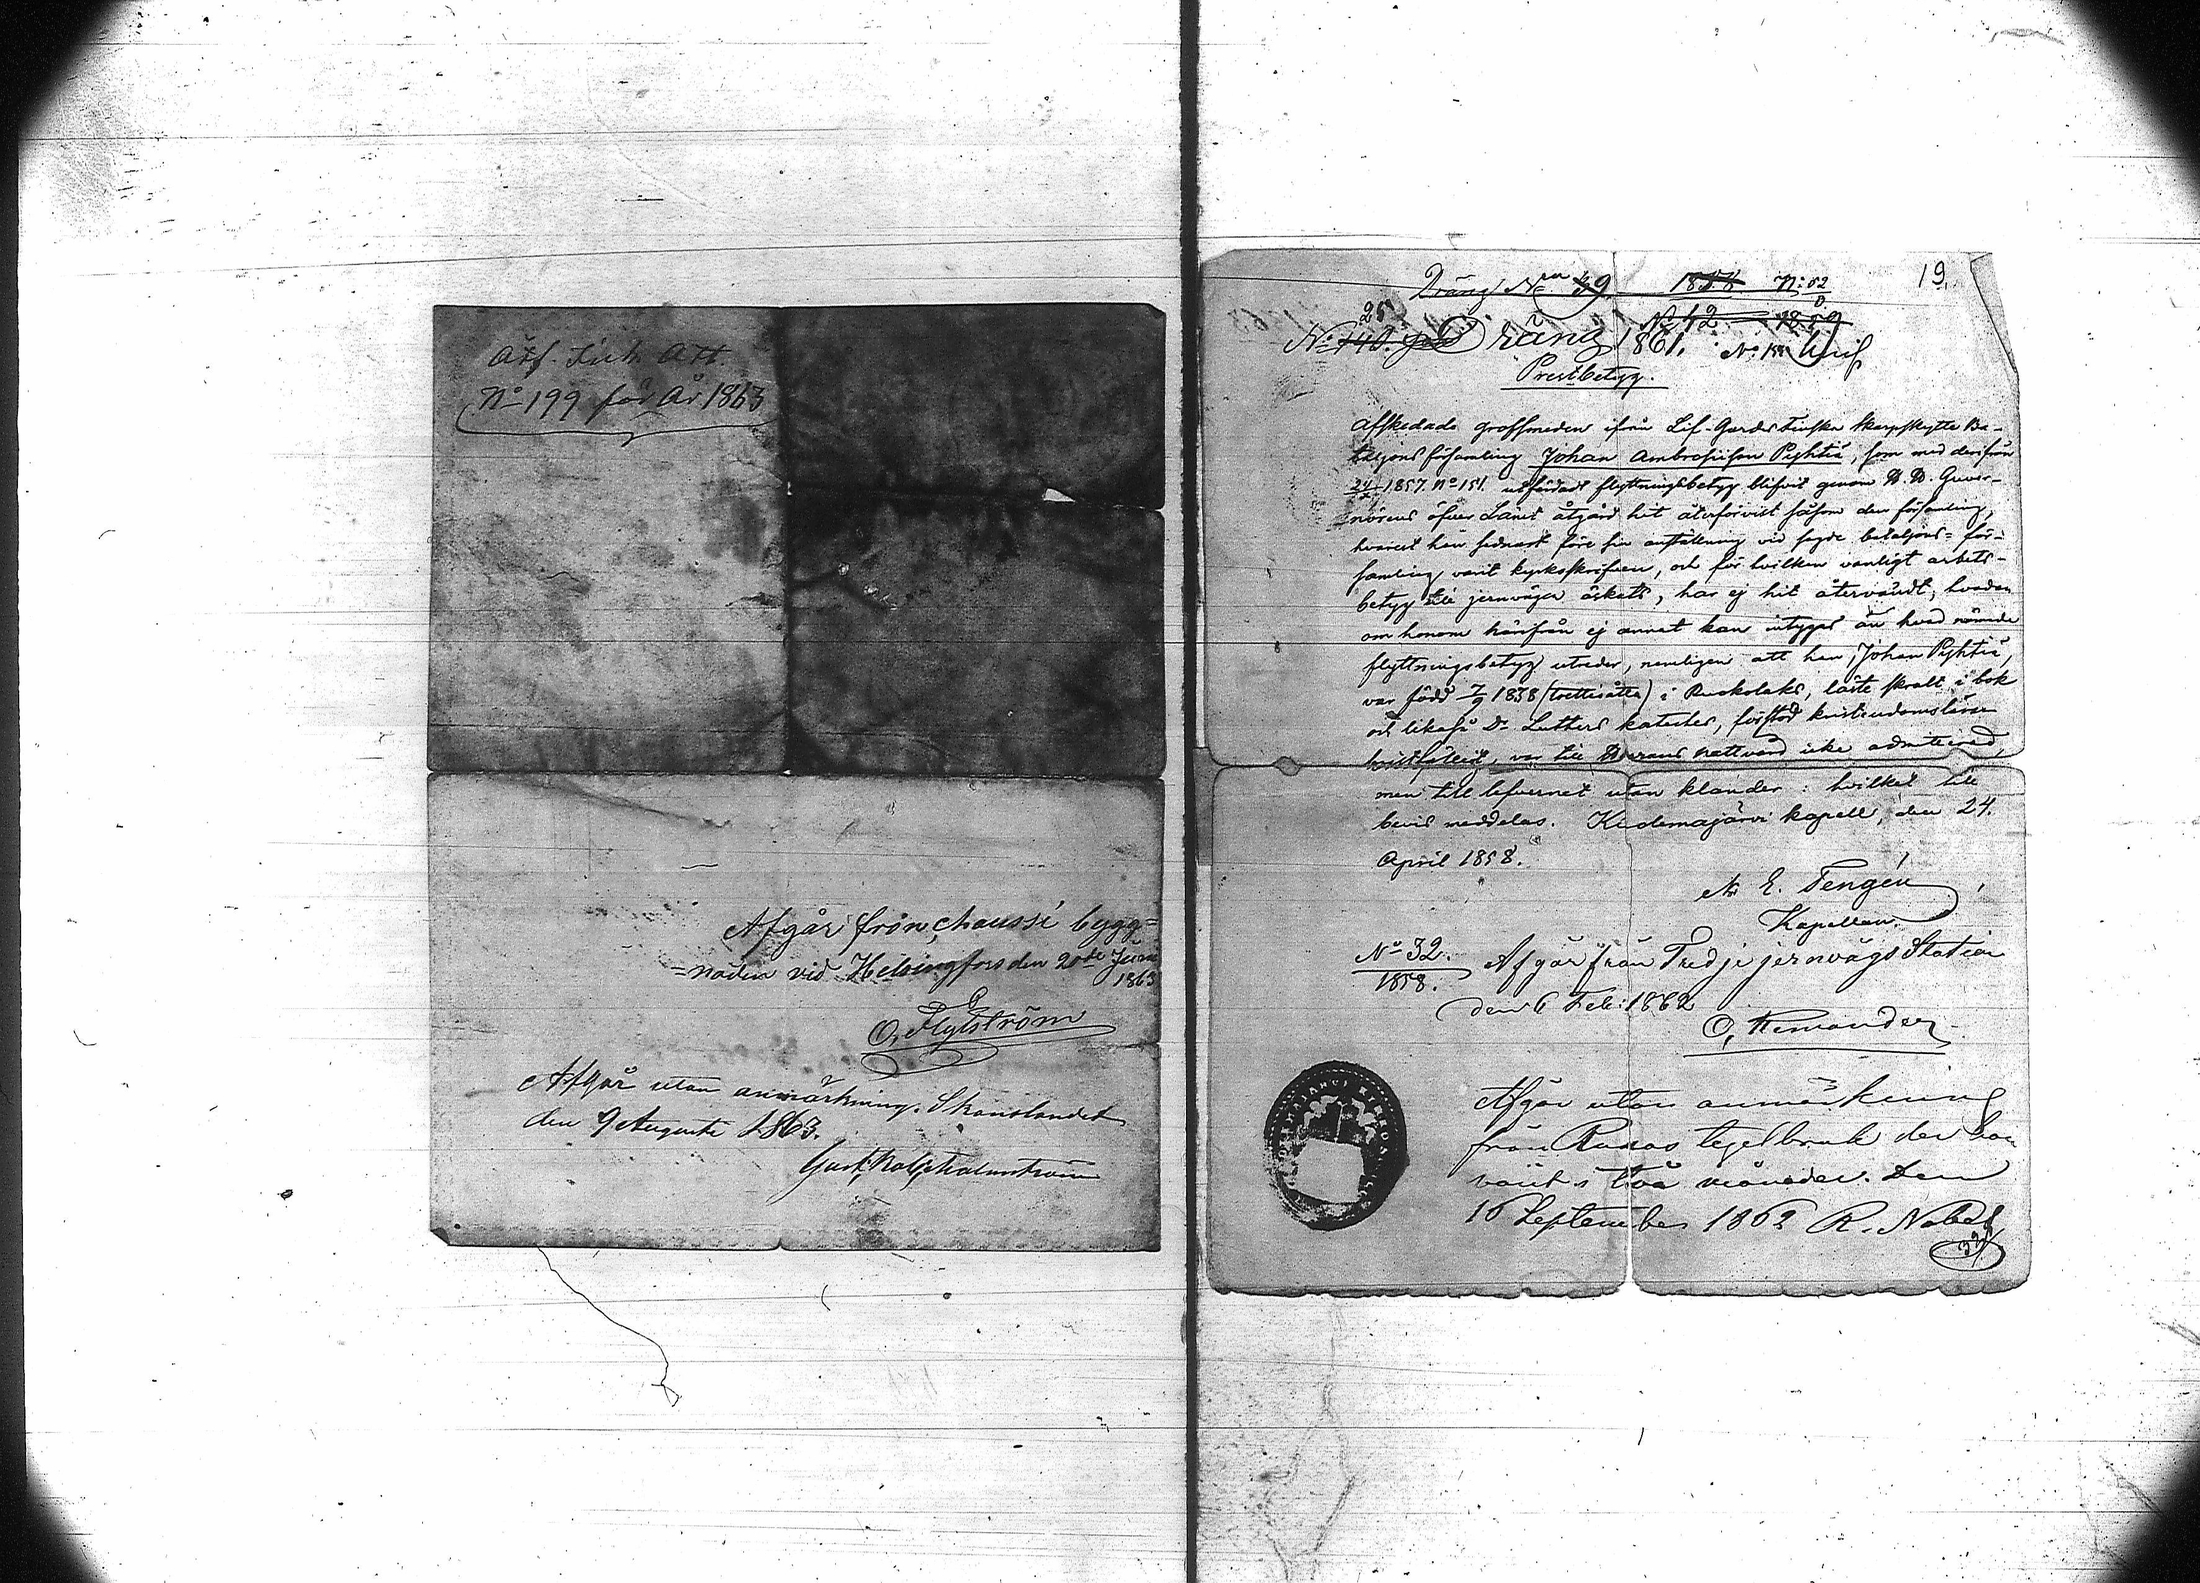 Att. Fieh. Att.
No 199 för År 1863
Afgår från chaussé bygg=
=naden vid Helsingfors den 20de Juni
1863
O. Flygström
Afgår utan anmärkning. Skanslandet
den 9 Augusti 1863.
Gust.
19
Dräng No 39 1858 No: 52
25
No 42 1859
No 140. Dräng 1861. No 155
Prestbetyg.
Afskedade grofsmeden ifrån Lif-Gardes Finska Skarpskytte Ba-
taljons församling Johan Ambrosiison Pyhtiä, som med derifrån
24/4 1857. No 151. utfärdadt flyttningsbetyg blifvit genom H. H. Guver-
nörens öfver Länet åtgärd hit återförvist såsom den församling,
hvarest han sednast före sin anställning vid sagde bataljons= för-
samling varit kyrkoskrifven, och för hvilken vanligt arbets-
betyg till jernväga äskats, har ej hit återvändt, hvadan
om honom härifrån ej annat kan intygas än hvad nämnde
flyttningsbetyg utreder, nemligen att han, Johan Pyhtiä,
var född 7/9 1838 (trettiåtta) i Ruokolaks, läste svalt i bok
och likaså Dr Luthers kateches, förstod kristendomsläran
bristfälligt, var till Herrans nattvard icke admitterad,
men till lefvernet utan klander: hvilket till
bevis meddelas. Kidemajärvi kapell, den 24.
April 1858.
E. Tengén
Kapellan.
No 32.
1858.
Afgår från Tredje jernvägs Station
den 6 Feb: 1862
Afgår utan anmärkning
från tegelbruk der han
varit i två månader. Den
16 September 1862 R.